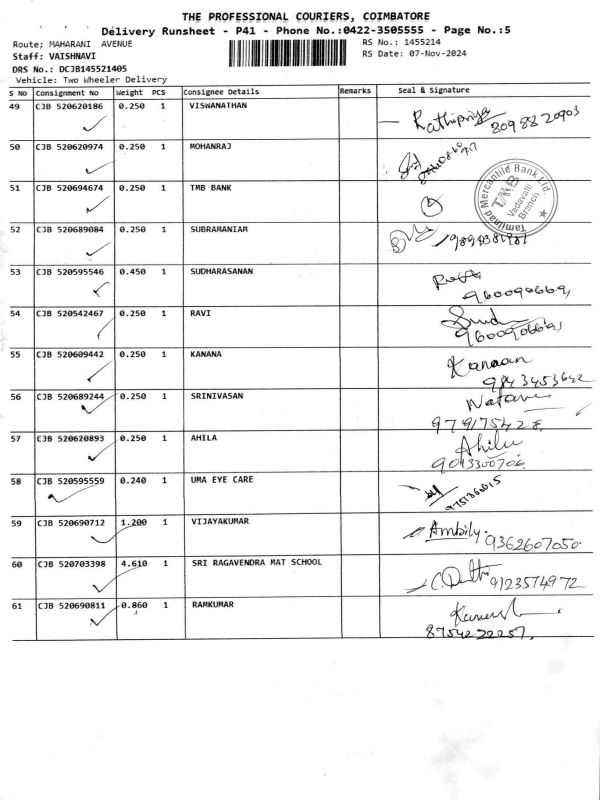 THE PROFESSIONAL COURIERS, COIMBATORE
Delivery Runsheet - P41 - Phone No.:0422-3505555 - Page No.:5
Route; MAHARANI AVENUE
RS No.: 1455214
Staff: VAISHNAVI
RS Date: 07-Nov-2024
DRS No.: DCJB145521405
Vehicle: Two Wheeler Delivery
S No Consignment No Weight PCS Consignee Details Remarks Seal & Signature
49 CJB 520620186 0.250 1 VISWANATHAN
Rathipriya 8098820903
50 CJB 520620974 0.250 1 MOHANRAJ
51 CJB 520694674 0.250 1 TMB BANK
Tamilnad Mercantile Bank Ltd
TMB
Vadavalli
Branch
52 CJB 520689084 0.250 1 SUBRAMANIAM
53 CJB 520595546 0.450 1 SUDHARASANAN
54 CJB 520542467 0.250 1 RAVI
55 CJB 520609442 0.250 1 KANANA
Kanaan
9843453642
56 CJB 520689244 0.250 1 SRINIVASAN
57 CJB 520620893 0.250 1 AHILA
58 CJB 520595559 0.240 1 UMA EYE CARE
59 CJB 520690712 1.200 1 VIJAYAKUMAR
Ambily
9362607050
60 CJB 520703398 4.610 1 SRI RAGAVENDRA MAT SCHOOL
9123574972
61 CJB 520690811 0.860 1 RAMKUMAR
8754222257